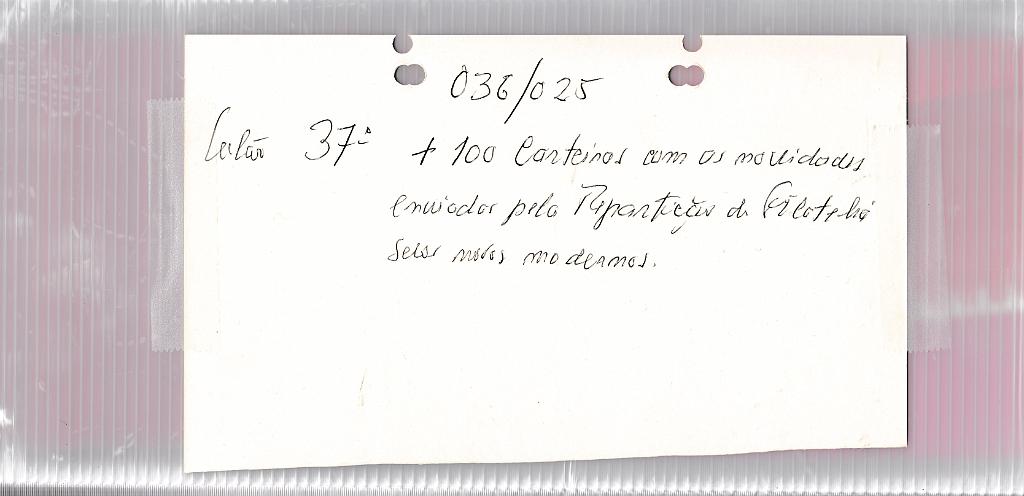 036/025
Leilão 37º + 100 Carteiras com as novidades
enviadas pela Repartição de Filatelia
Selos novos modernos.